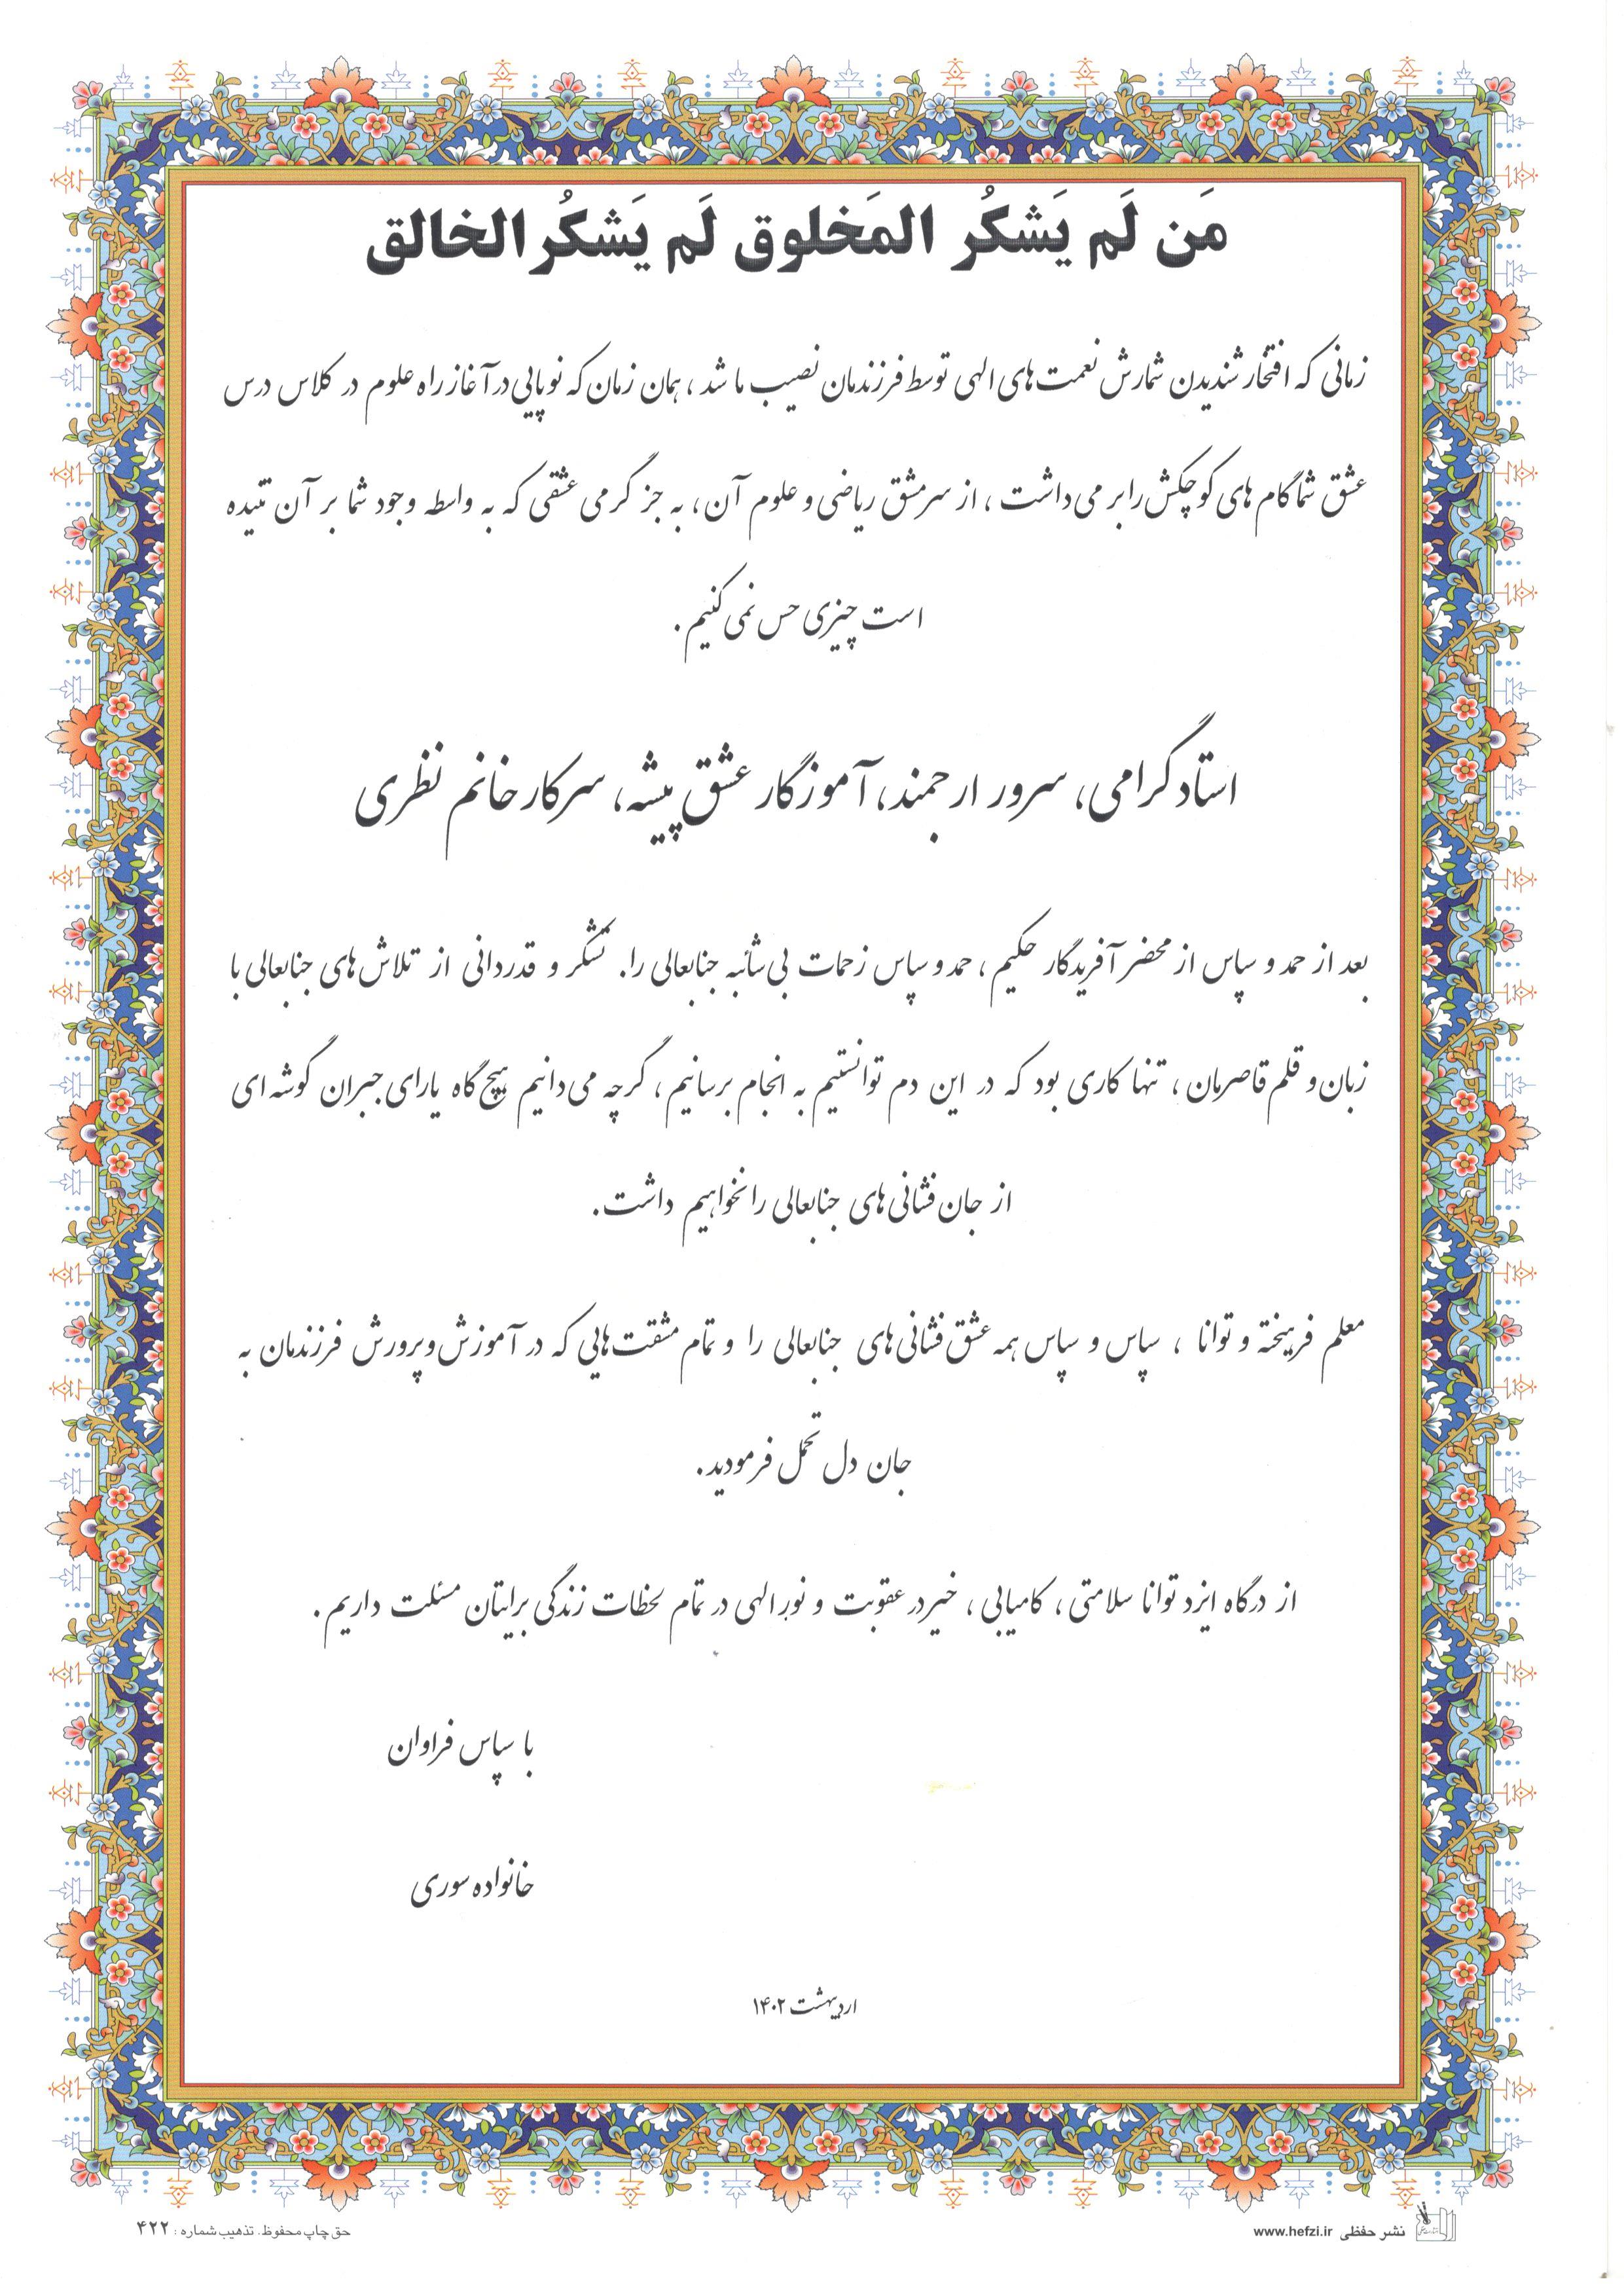 مَن لَم یَشکُر المَخلوق لَم یَشکُر الخالق
زمانی که افتخار شندیدن شمارش نعمت‌های الهی توسط فرزندمان نصیب ما شد، همان زمان که نوپایی در آغاز راه علوم در کلاس درس
عشق شما گام های کوچکش را بر می‌داشت، از سرمشق ریاضی و علوم آن، به جز گرمی عشقی که به واسطه وجود شما بر آن تنیده
است چیزی حس نمی‌کنیم.
استاد گرامی، سرور ارجمند، آموزگار عشق پیشه، سرکار خانم نظری
بعد از حمد و سپاس از محضر آفریدگار حکیم، حمد و سپاس زحمات بی‌شائبه جنابعالی را. تشکر و قدردانی از تلاش‌های جنابعالی با
زبان و قلم قاصرمان، تنها کاری بود که در این دم توانستیم به انجام برسانیم، گرچه می‌دانیم هیچ گاه یارای جبران گوشه ای
از جان فشانی‌های جنابعالی را نخواهیم داشت.
معلم فرهیخته و توانا ، سپاس و سپاس همه عشق فشانی‌های جنابعالی را و تمام مشقت‌هایی که در آموزش و پرورش فرزندمان به
جان دل تحمل فرمودید.
از درگاه ایزد توانا سلامتی، کامیابی، خیر در عقوبت و نور الهی در تمام لحظات زندگی برایتان مسئلت داریم.
با سپاس فراوان
خانواده سوری
اردیبهشت ۱۴۰۲
نشر حفظی www.hefzi.ir
حق چاپ محفوظ. تذهیب شماره : ۴۲۲